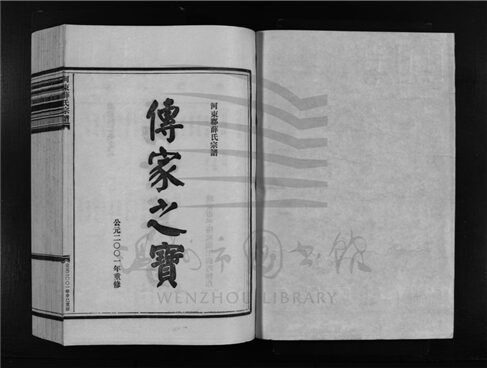 河東郡薛氏宗譜
傳家之寶
公元二〇〇一年重修
河東薛氏宗譜
温州市圖書館
WENZHOU LIBRARY